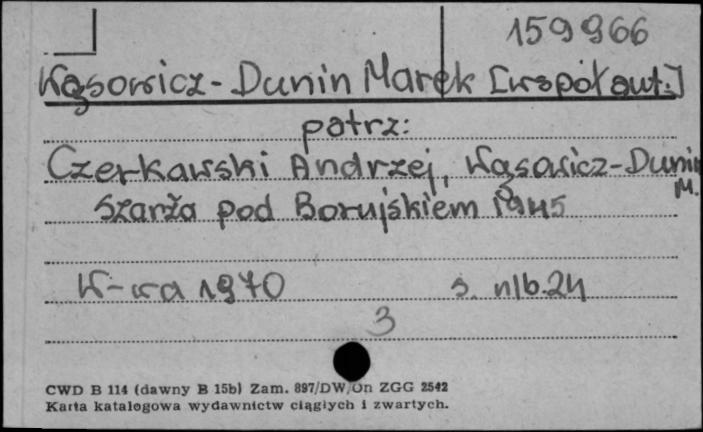 159966
Wąsowicz-Dunin Marek [współaut.]
patrz:
Czerkawski Andrzej, Wąsowicz-Dunin M.
Szarża pod Borujskiem 1945
W-wa 1970 s. nlb. 24
3
CWD B 114 (dawny B 15b) Zam. 897/DW/On ZGG 2542
Karta katalogowa wydawnictw ciągłych i zwartych.